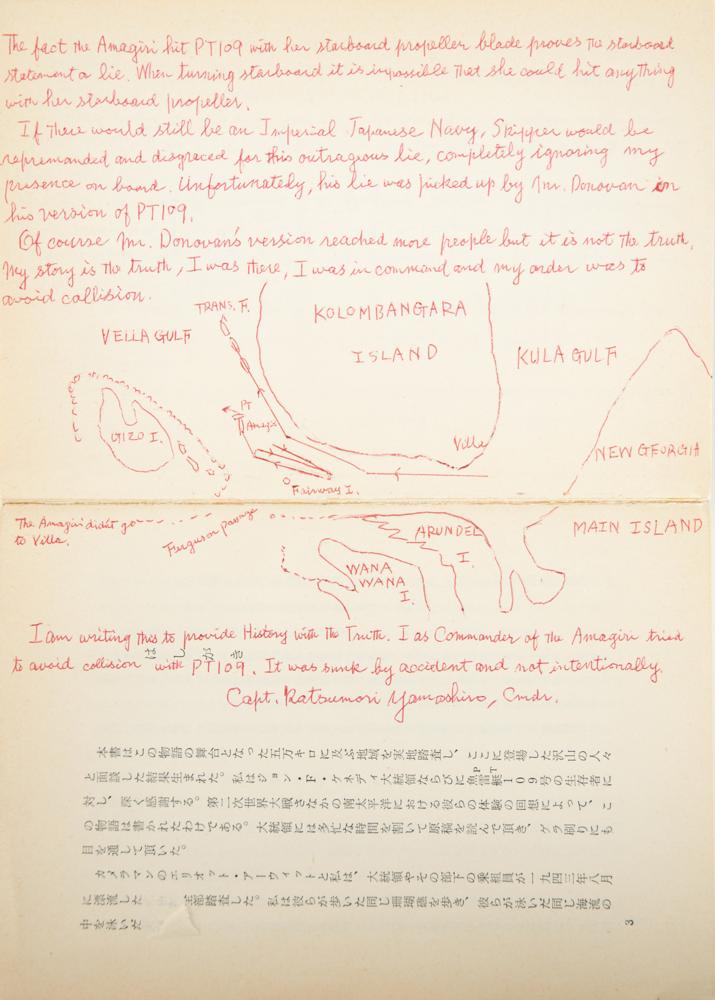 The fact the Amagiri hit PT109 with her starboard propeller blade proves the starboard
statement a lie. When turning starboard it is impossible that she could hit anything
with her starboard propeller.
If there would still be an Imperial Japanese Navy, Skipper would be
reprimanded and disgraced for this outrageous lie, completely ignoring my
presence on board. Unfortunately, his lie was picked up by Mr. Donovan in
his version of PT109.
Of course Mr. Donovan's version reached more people but it is not the truth,
My story is the truth, I was there, I was in command and my order was to
avoid collision.
TRANS. F.
KOLOMBANGARA
ISLAND
VELLA GULF
KULA GULF
PT
Amagiri
GIZO I.
Villa
NEW GEORGIA
Fairway I.
The Amagiri didn't go
to Villa.
Ferguson passage
ARUNDEL
I.
MAIN ISLAND
WANA
WANA
I.
I am writing this to provide History with the Truth. I as Commander of the Amagiri tried
to avoid collision with PT109. It was sunk by accident and not intentionally.
Capt. Katsumori Yamashiro, Cmdr.
はしがき
本書はこの物語の舞台となった五万キロに及ぶ地域を実地踏査し、ここに登場した沢山の人々
と面談した結果生まれた。私はジョン・F・ケネディ大統領ならびに魚雷艇109号の生存者に
PT
対し、深く感謝する。第二次世界大戦さなかの南太平洋における彼らの体験の回想によって、こ
の物語は書かれたわけである。大統領には多忙な時間を割いて原稿を読んで頂き、ゲラ刷りにも
目を通して頂いた。
カメラマンのエリオット・アーウィットと私は、大統領やその部下の乗組員が一九四三年八月
に漂流した 全部踏査した。私は彼らが歩いた同じ珊瑚礁を歩き、彼らが泳いだ同じ海流の
中を泳いだ
3